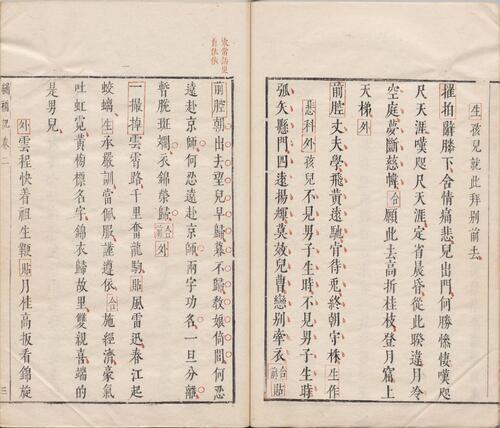 生孩兒就此拜別前去
摧拍辭膝下含情痛悲兒出門何勝悽嘆咫
尺天涯嘆咫尺天涯定省晨昏從此暌違月冷
空庭夢斷慈幃合願此去高折桂枝登月窟上
天梯外
前腔丈夫學飛黃遠馳宵待兎終朝守株生作
悲科外孩兒不見男子生時不見男子生時
弧矢懸門四遠揚輝莫效兒曹戀別牽衣合前貼
前腔朝出去望兒早歸暮不歸教娘倚閭何恐
遠赴京師何恐遠赴京師兩字功名一旦分離
暫脫斑斕衣錦榮歸合前外
一撮掉雲霄路千里奮龍駒貼風雷迅春江起
蛟螭生承嚴訓當佩服謹遵依合施經濟豪氣
吐虹霓黃榜標名字錦衣歸故里雙親喜端的
是男兒
外雲程快着祖生鞭貼月桂高扳看錦旋
繡襦記卷二
三